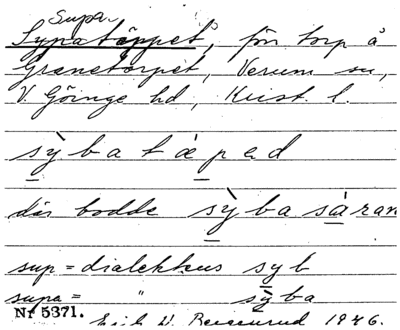 Supa-
Sypatäppet, för torp å
Granetorpet, Verum sn,
V. Göinge hd, Krist. l.
sỳbatæpad
där bodde sỳbasàran
sup = dialektens syb
supa = " sỳba
Nr 5371. Erik W. 1946.